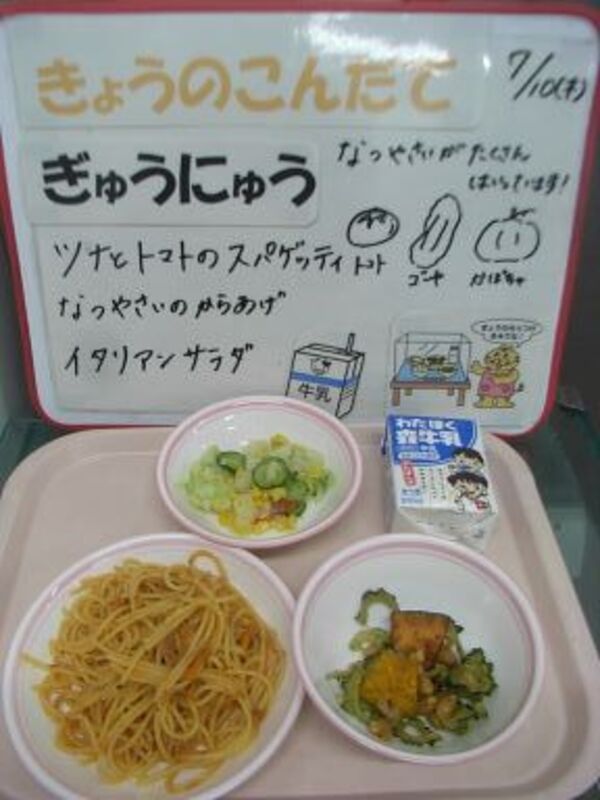 きょうのこんだて
7/10(木)
ぎゅうにゅう
なつやさいが たくさん
はいっています!
ツナとトマトのスパゲッティ
トマト
ゴーヤ
かぼちゃ
なつやさいのからあげ
イタリアンサラダ
牛乳
わたぼく
森牛乳